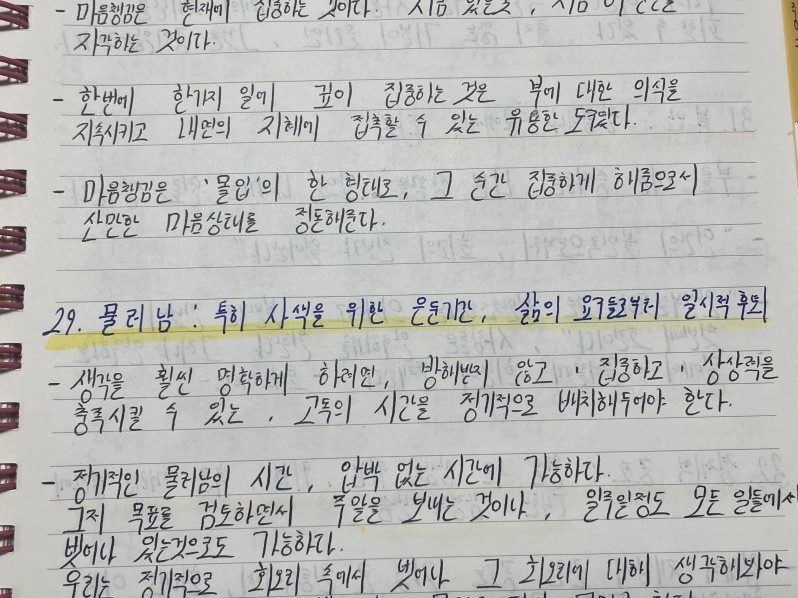 - 마음챙김은 현재에 집중하는 것이다. 지금 있는곳, 지금 이
자각하는 것이다.
- 한번에 한가지 일에 깊이 집중하는 것은 부에 대한 의식을
지속시키고 내면의 지혜에 접촉할 수 있는 유용한 도구있다.
- 마음챙김은 '몰입'의 한 형태로, 그 순간 집중하게 해줌으로서
산만한 마음상태를 정돈해준다.
29. 물러남 : 특히 사색을 위한 은둔기간, 삶의 요구들로부터 일시적 후퇴
- 생각을 훨씬 명확하게 하려면, 방해받지 않고 · 집중하고 · 상상력을
충족시킬 수 있는, 고독의 시간을 정기적으로 배치해두어야 한다.
- 정기적인 물러남의 시간, 압박 없는 시간에 가능하다.
그저 목표를 검토하면서 주일을 보내는 것이나, 일주일정도 모든 일들에서
벗어나 있는것으로도 가능하다.
우리는 정기적으로 회오리 속에서 벗어나 그 회오리에 대해 생각해봐야